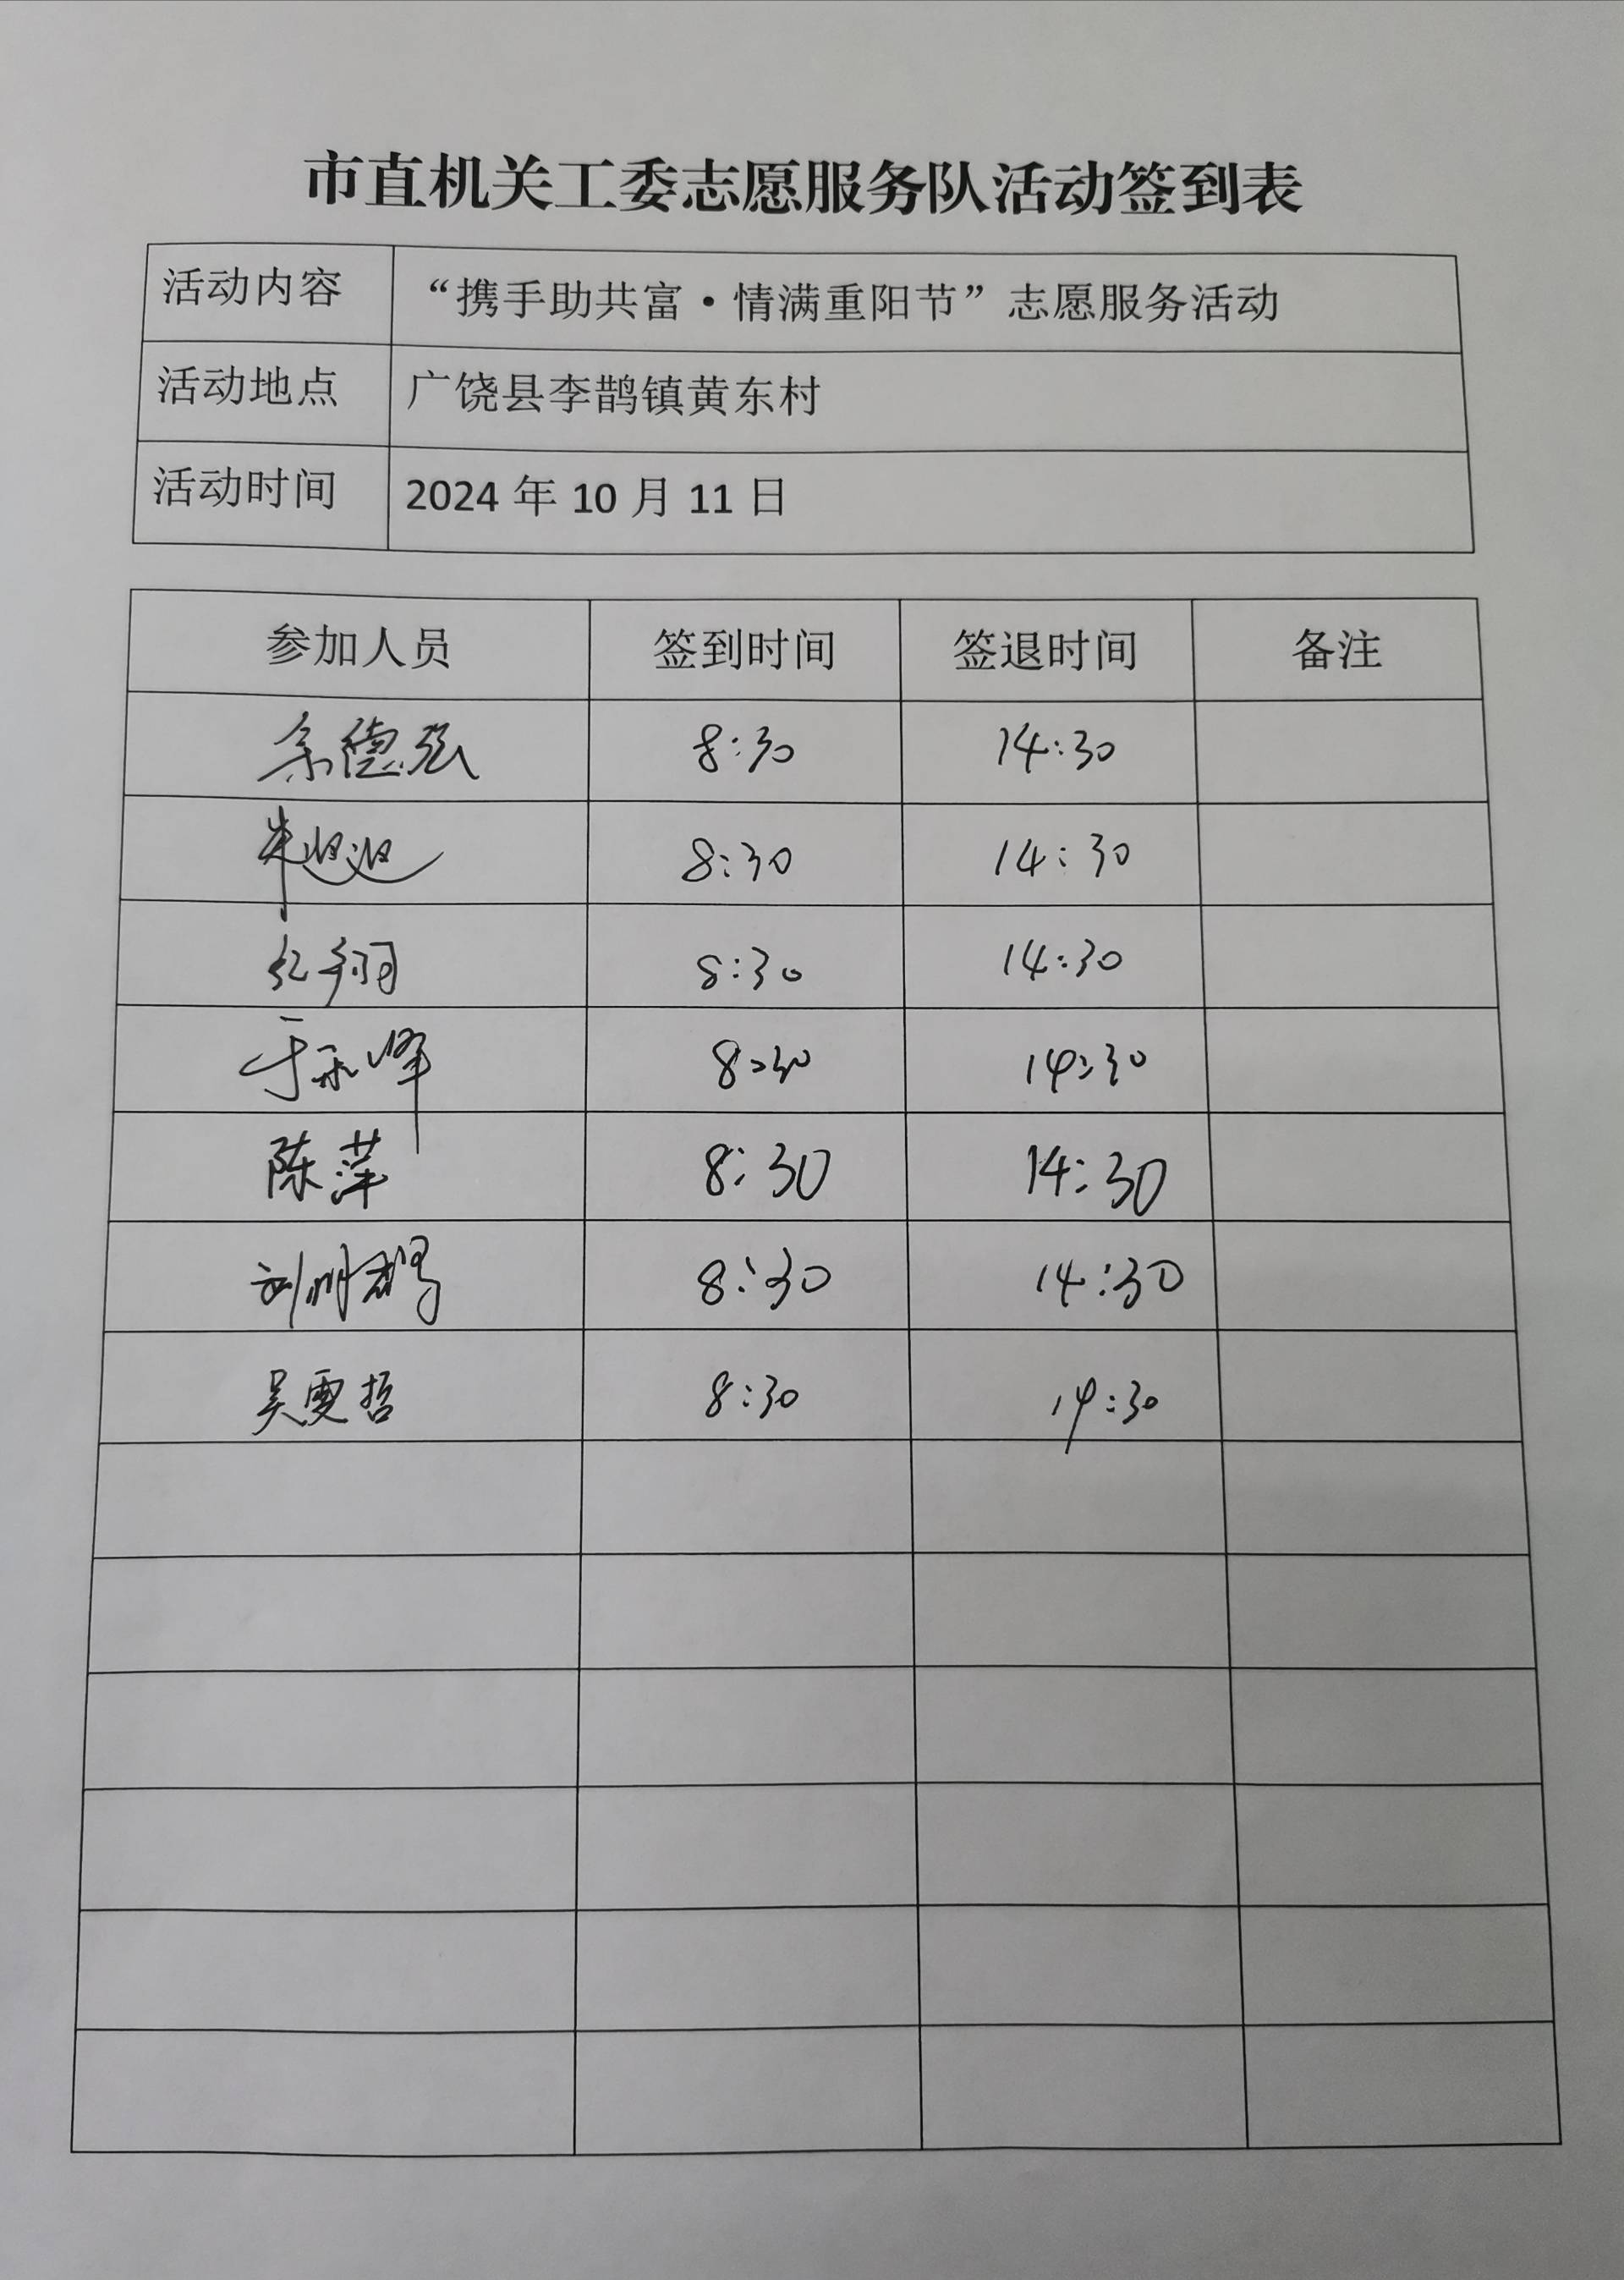 市直机关工委志愿服务队活动签到表
活动内容 “携手助共富·情满重阳节”志愿服务活动
活动地点 广饶县李鹊镇黄东村
活动时间 2024 年 10 月 11 日
参加人员 签到时间 签退时间 备注
8:30 14:30
8:30 14:30
8:30 14:30
8:30 14:30
陈萍 8:30 14:30
8:30 14:30
吴雯哲 8:30 14:30